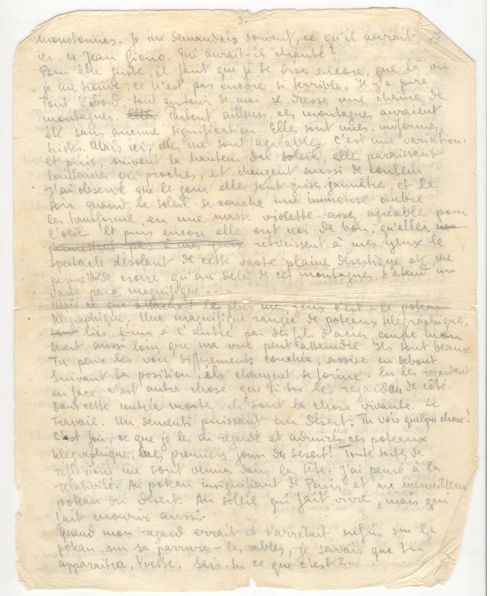 3.
monotones. Je me demandais souvent, ce qu'il aurait
ici, ce Jean Giono. Qui aurait-il chanté?
Pour être juste, il faut que je te dise encore, que là où
je me trouve, ce n'est pas encore si terrible. Il y a pire.
Tout d'abord tout autour de moi se dresse une chaine de
montagnes. Partout ailleurs, ces montagnes auraient
été sans aucune signification. Elles sont nues, uniformes,
tristes. Mais ici, elles me sont agréables. C'est une variation.
Et puis, suivant la hauteur du soleil, elles paraissent
lointaines ou proches, et changent aussi de couleur.
J'ai observé que le jour elles sont grise-jaunâtres, et le
soir, quand le soleil se couche une immense ombre
les transforme en une masse violette assez agréable pour
l'oeil. Et puis encore elle ont ceci de bon, qu'elles
retrécissent à mes yeux le
spectacle désolant de cette vaste plaine désertique et me
permettent de croire qu'au delà de ces montagnes s'étend un
vaste parc magnifique
Mais ce que le plus c'est le poteau
télégraphique. Une magnifique rangée de poteaux télégraphiques,
liés l'un à l'autre par des fils d'acier, coupe mon
désert aussi loin que ma vue peut atteindre. Ils sont beaux
Tu peux les voir différemment couché, assis ou debout.
Suivant ta position, ils changent de forme. En les regardant
en face c'est autre chose que si tu les regardes de côté.
Dans cette morte, ils sont la chose vivante. Le
travail. Un démenti puissant au désert. Tu vois quelque chose!
C'est fou, ce que je les ai regardé et admirés, ces poteaux
télégraphiques, les premiers jours du désert! Toute sorte de
réflexions me sont venus dans la tête. J'ai pensé à la
relativité. Au poteau insignifiant de Paris et au merveilleux
poteau du désert. Au soleil qui fait vivre, mais qui
fait mourir aussi.
Quand mon regard errait et s'arrêtait enfin sur le
poteau, sur sa parure - les cables, je savais que tu
apparaîtra, Yvette. Sais-tu ce que c'est?